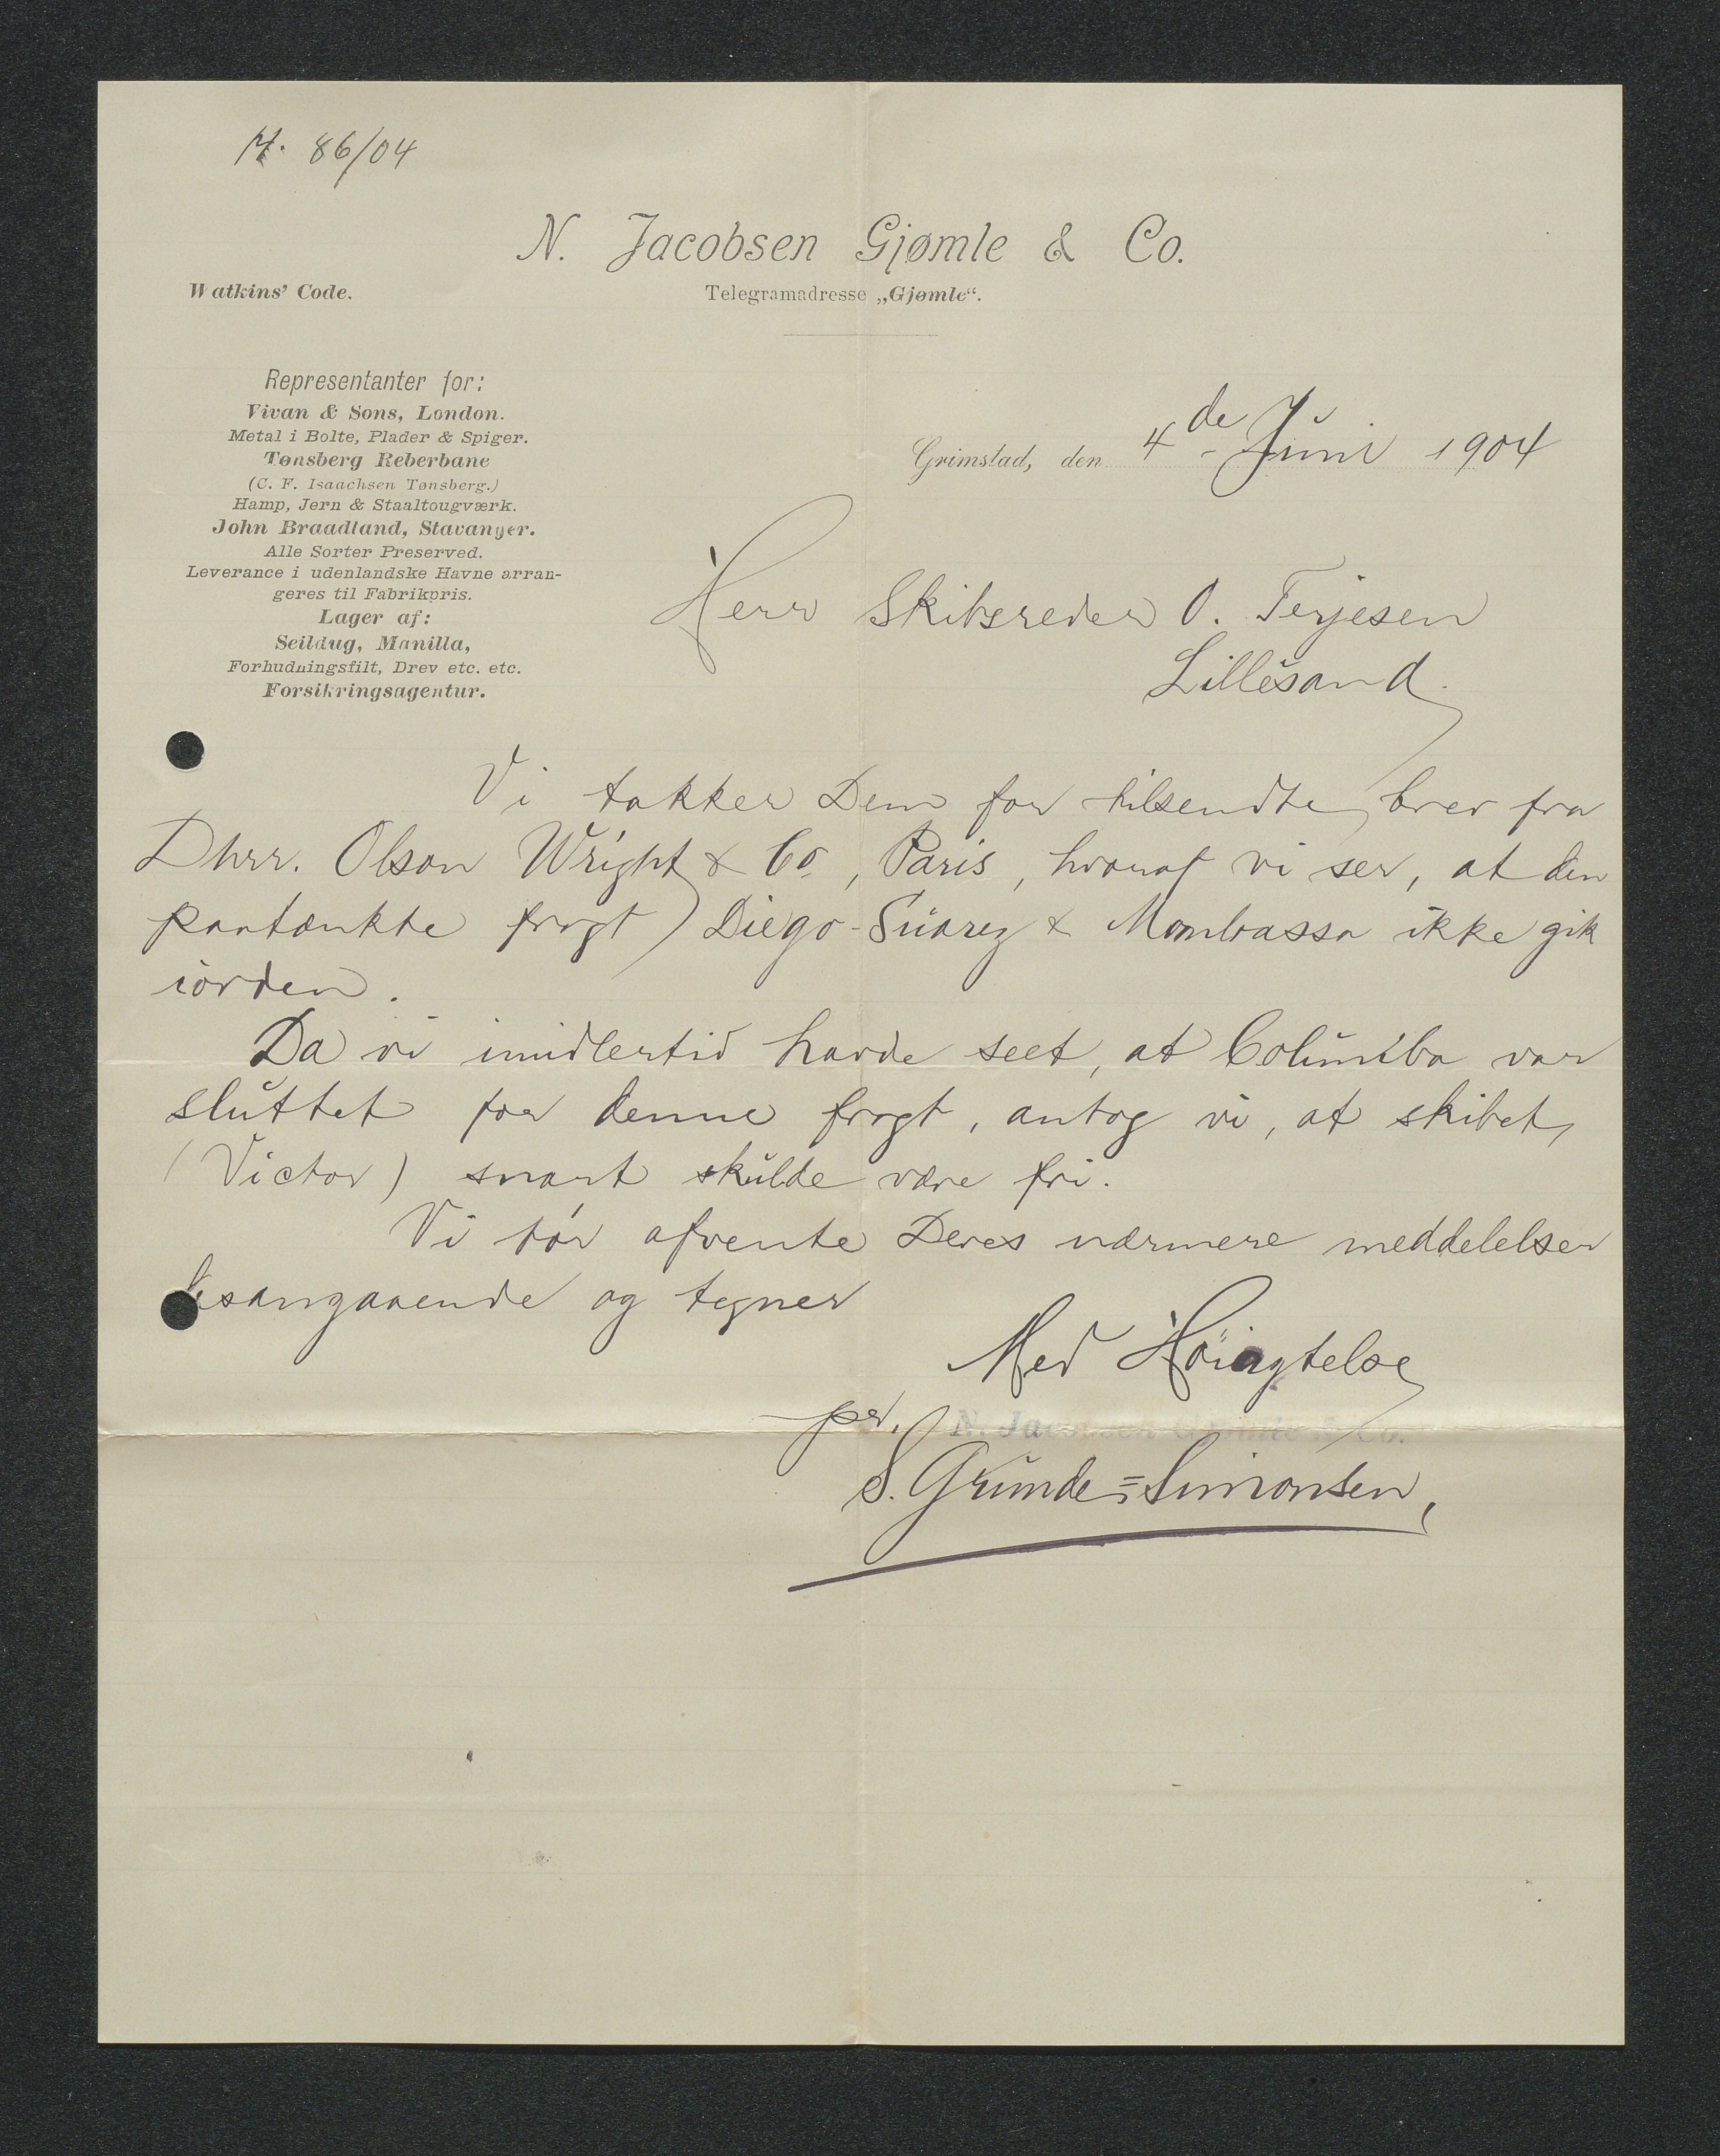 86/04
N. Jacobsen Gjømle & Co.
Watkins' Code.
Telegramadresse „Gjømle“.
Representanter for:
Vivan & Sons, London.
Metal i Bolte, Plader & Spiger.
Tønsberg Reberbane
(C. F. Isaachsen Tønsberg.)
Hamp, Jern & Staaltougværk.
John Braadland, Stavanger.
Alle Sorter Preserved.
Leverance i udenlandske Havne arran-
geres til Fabrikpris.
Lager af:
Seildug, Manilla,
Forhudningsfilt, Drev etc. etc.
Forsikringsagentur.
Grimstad, den 4de Juni 1904
Herr Skibsreder O. Terjesen
Lillesand.
Vi takker Dem for tilsendte brev fra
Dhrr. Olson Wright & Co, Paris, hvoraf vi ser, at den
paatænkte fragt Diego-Suarez & Mombassa ikke gik
iorden.
Da vi imidlertid havde seet, at Columba var
sluttet for denne fragt, antog vi, at skibet
(Victor) snart skulde være fri.
Vi tør afvente Deres nærmere meddelelser
desangaaende og tegner
Med Höiagtelse
pr. N. Jacobsen Gjømle & Co.
S. Grunde=Simonsen,